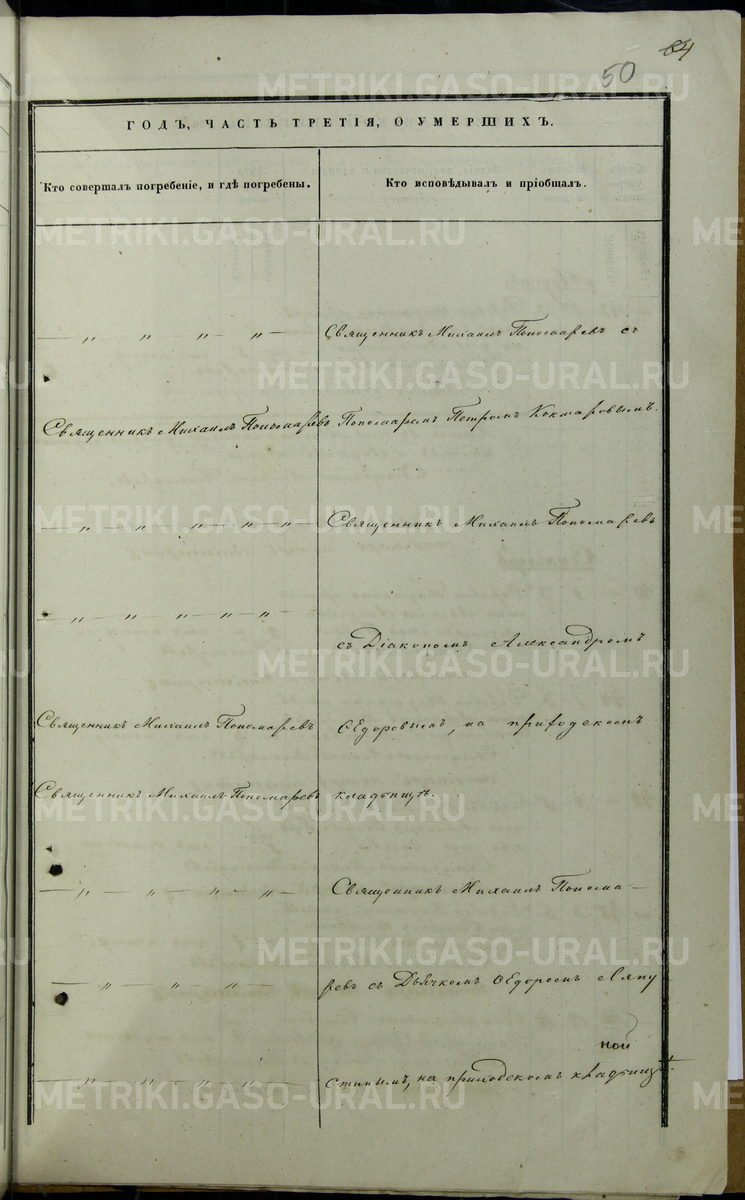 64
50
ГОДЪ, ЧАСТЬ ТРЕТІЯ, О УМЕРШИХЪ.
Кто совершалъ погребеніе, и гдѣ погребены.
Кто исповѣдывалъ и пріобщалъ.
— „ „ „ „ —
Священникъ Михаилъ Пономаревъ съ
Священникъ Михаилъ Пономаревъ
Пономаремъ Петромъ Кокшаровымъ.
— „ „ „ „ „ —
Священникъ Михаилъ Пономаревъ
— „ „ „ „ „ —
съ Діакономъ Александромъ
Священникъ Михаилъ Пономаревъ
Ѳедоровымъ, на приходскомъ
Священникъ Михаилъ Пономаревъ
кладбищѣ.
— „ „ „ „ —
Священникъ Михаилъ Понома—
— „ „ „ „ —
ревъ съ Дьячкомъ Ѳедоромъ Ляпу
ной
— „ „ „ „ —
стинымъ, на приходскомъ кладбищѣ.
METRIKI.GASO-URAL.RU